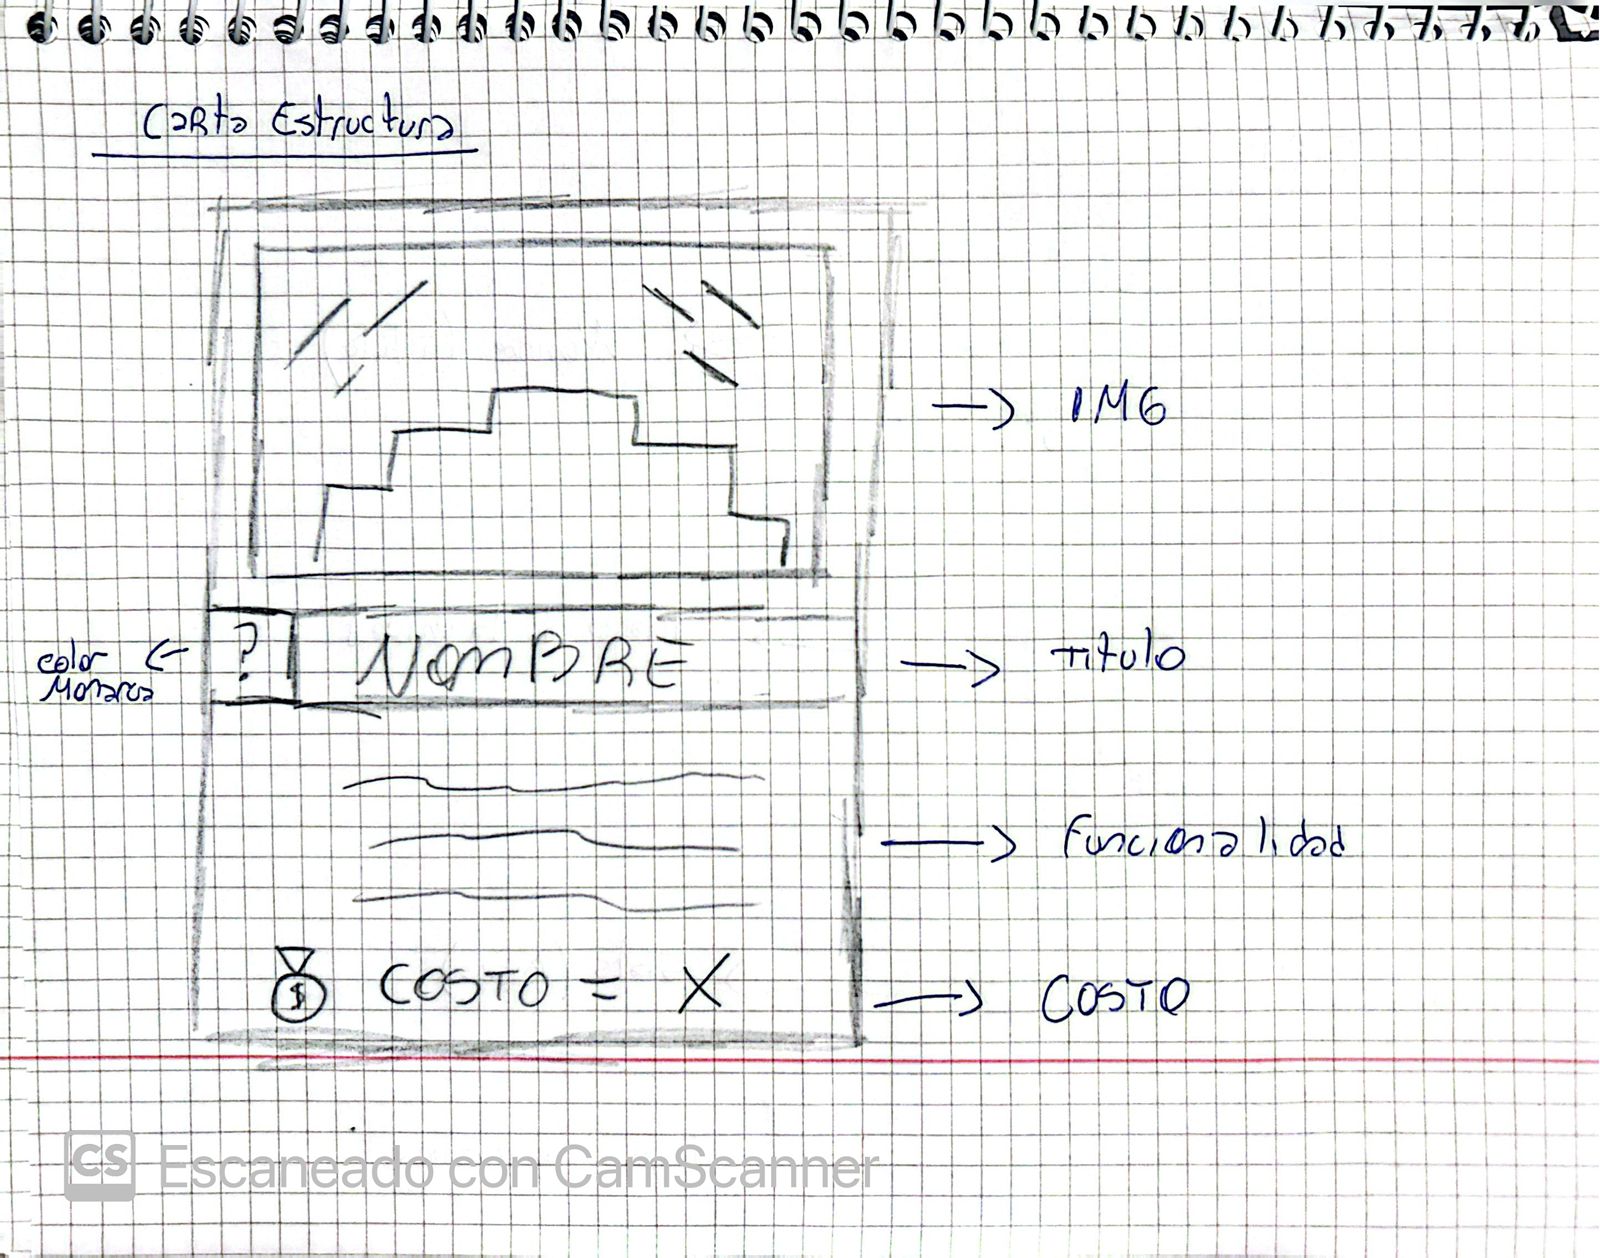 Carta Estructura
IMG
?
NOMBRE
color
Monarca
Titulo
Funcionalidad
$
COSTO = X
COSTO
CS Escaneado con CamScanner